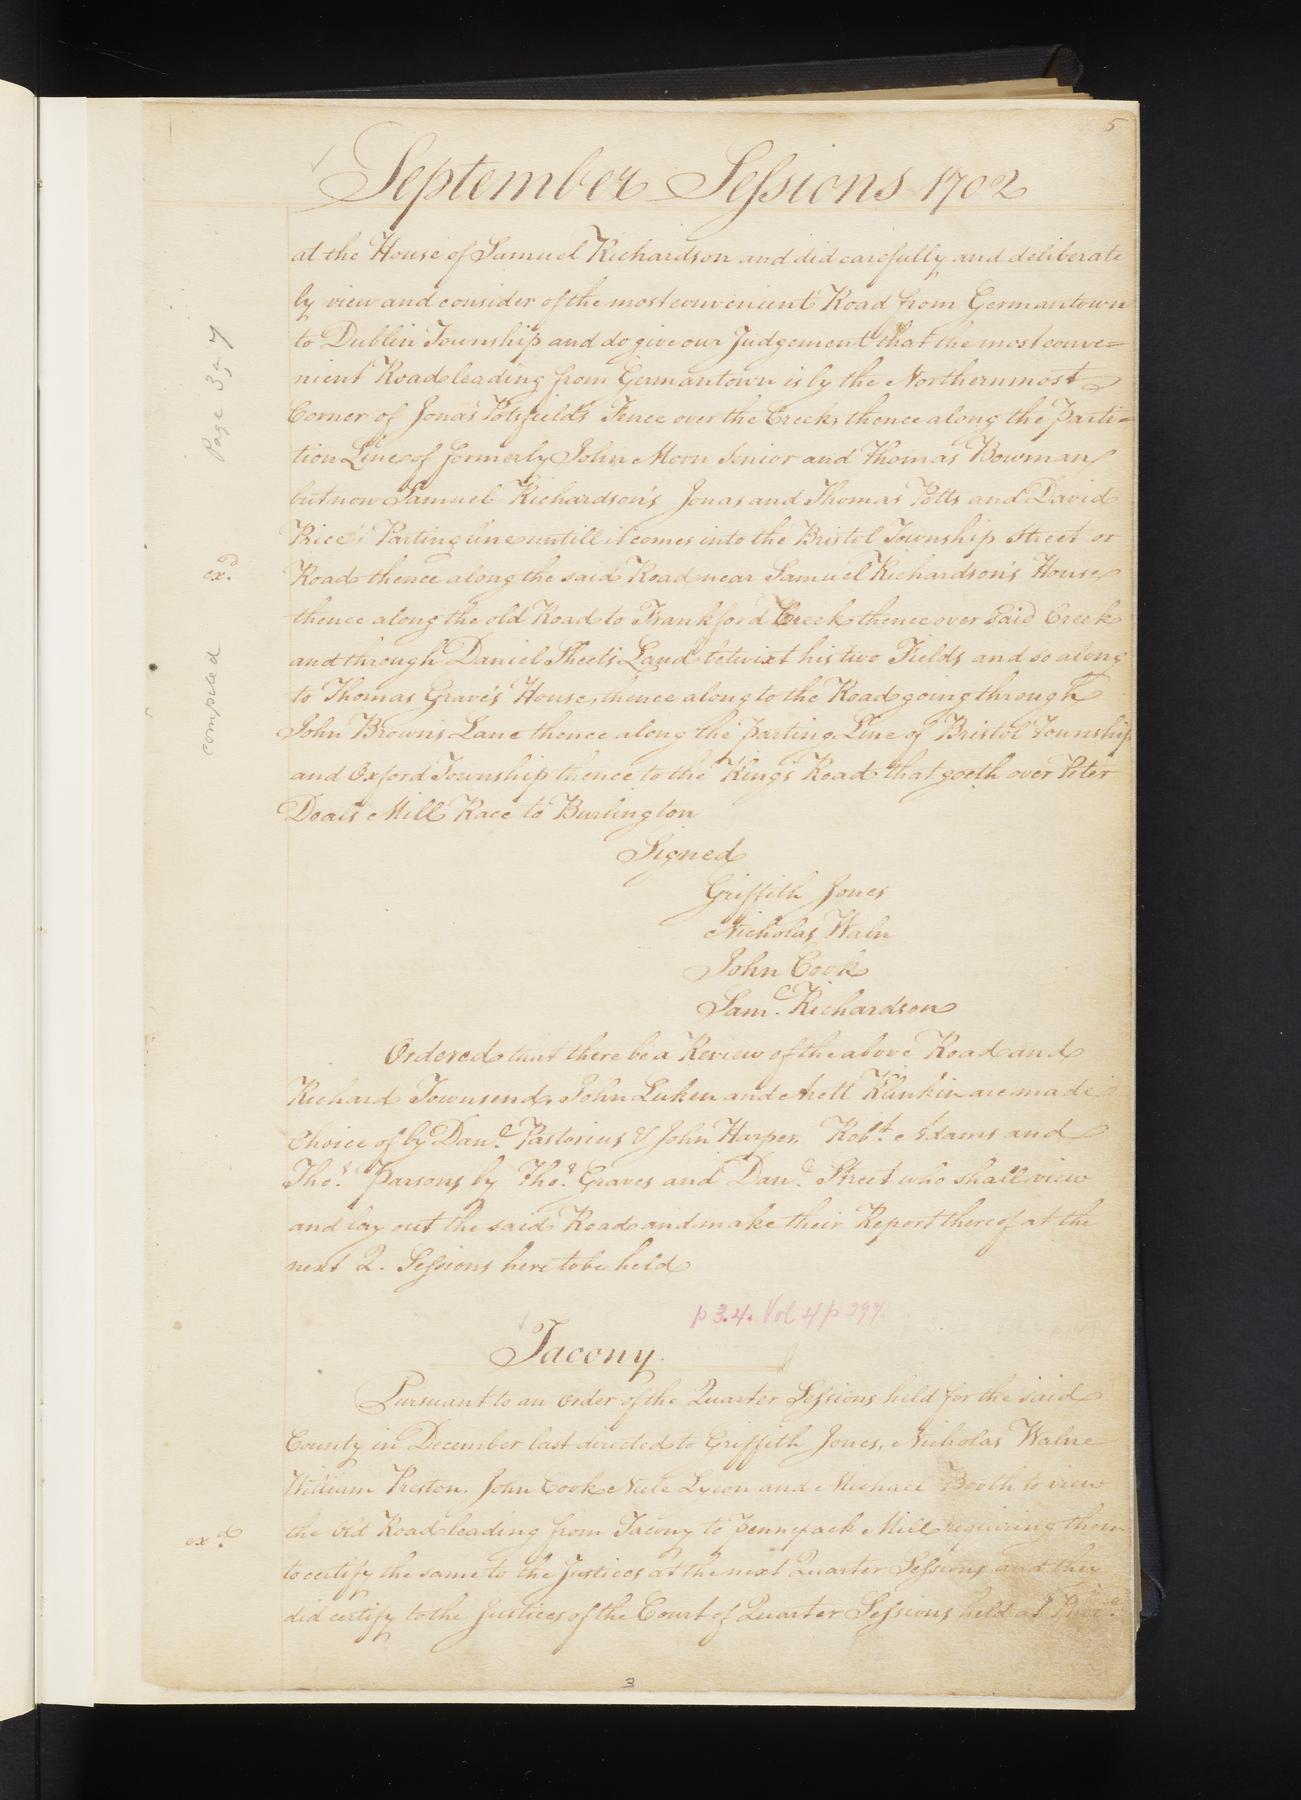 5
September Sessions 1702
at the House of Samuel Richardson and did carefully and deliberate
ly view and consider of the most convenient Road from Germantown
to Dublin Township and do give our Judgement that the most conve=
nient Road leading from Germantown is by the Northernmost
Corner of Jonas Potsfield's Fence over the Creek, thence along the parti=
tion Line of formerly John Moon Senior and Thomas Bowman
but now Samuel Richardson's Jonas and Thomas Potts and David
Price's Parting line untill it comes into the Bristol Township Street or
Road thence along the said Road near Samuel Richardson's House
thence along the old Road to Frankford Creek thence over said Creek
and through Daniel Street's Land betwixt his two Fields and so along
to Thomas Grave's House, thence along to the Road going through
John Brown's Lane thence along the parting Line of Bristol Township
and Oxford Township thence to the King's Road that goeth over Peter
Deal's Mill Race to Burlington
Signed
Griffith Jones
Nicholas Waln
John Cook
Sam.l Richardson
Ordered that there be a Review of the above Road and
Richard Townsend, John Luken and Arett Klinkin are made
choice of by Dan.l Pastorius & John Harper. Rob.t Adams and
Tho.s Parsons by Tho.s Graves and Dan.l Street who shall view
and lay out the said Road and make their Report thereof at the
next Q. Sessions here to be held
p 3.4. Vol 4 p 297.
Tacony.
Pursuant to an Order of the Quarter Sessions held for the said
County in December last directed to Griffith Jones, Nicholas Walne
William Preston, John Cook Neele Lycon and Michael Booth to view
the Old Road leading from Tacony to pennepack Mill requiring them
to certify the same to the Justices at the next Quarter Sessions and they
did certify to the Justices of the Court of Quarter Sessions held at
Page 3, 7
ex.d
compared
ex.d
3